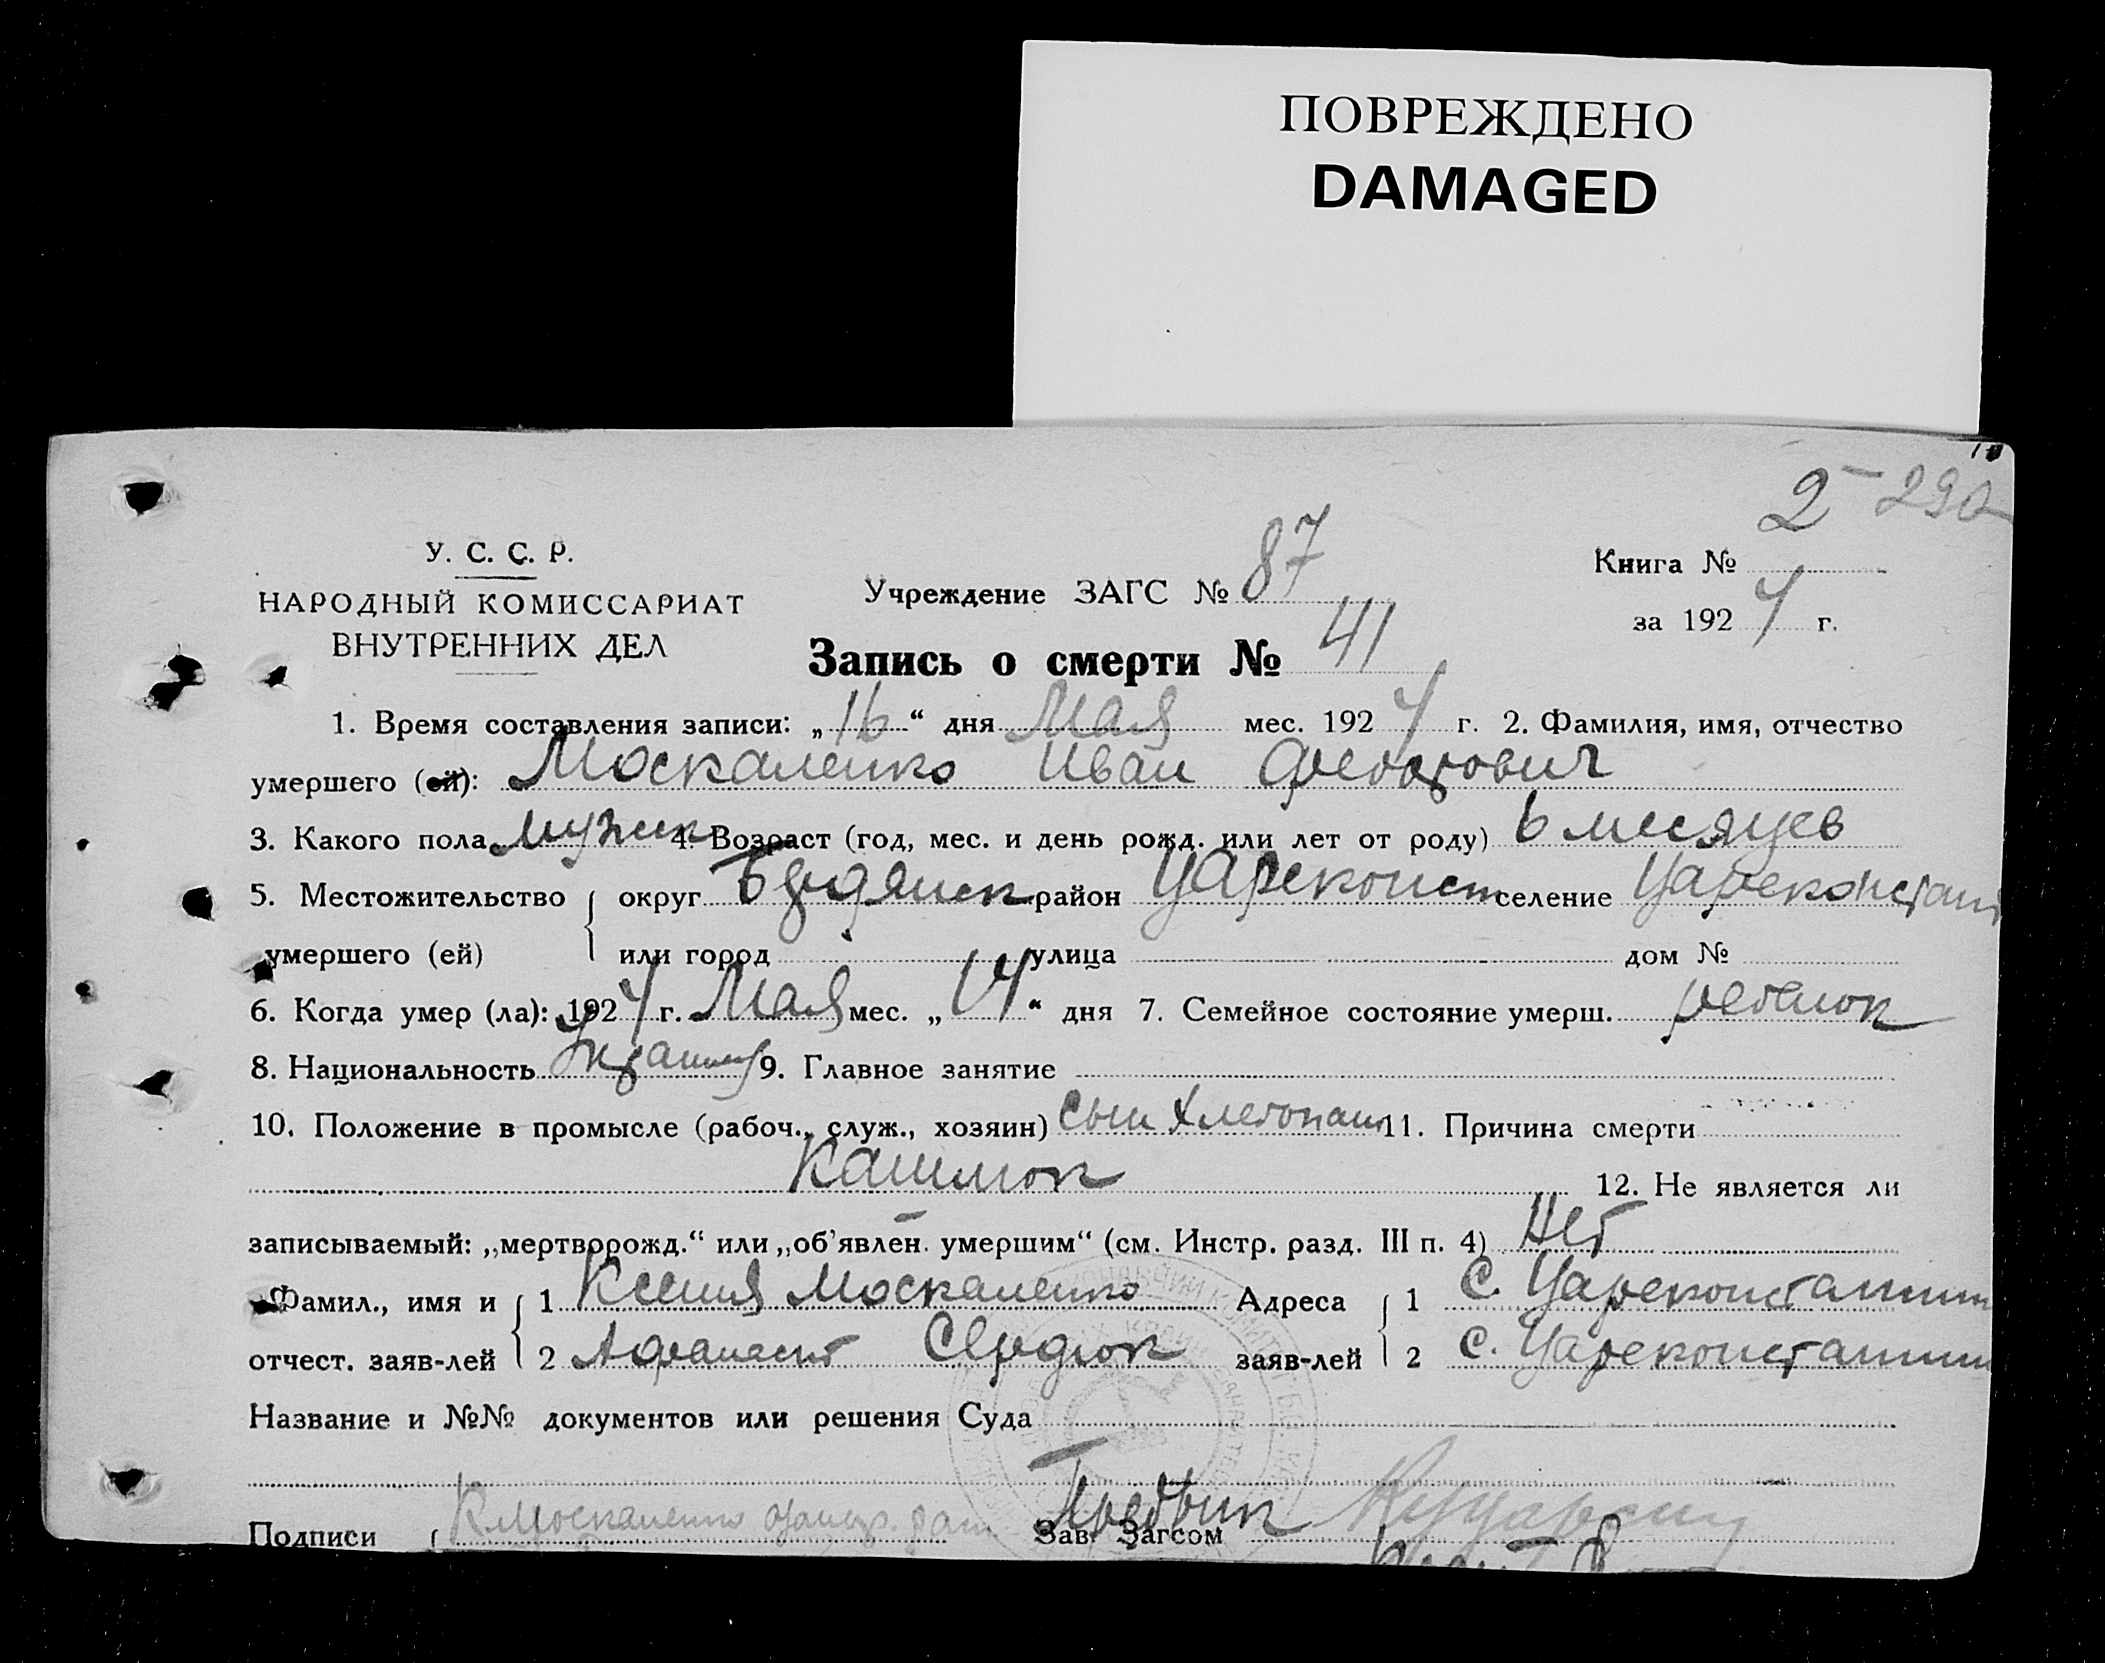 ПОВРЕЖДЕНО
DAMAGED
2 - 290
У. С. С. Р.
НАРОДНЫЙ КОМИССАРИАТ
ВНУТРЕННИХ ДЕЛ
Учреждение ЗАГС № 87
Книга №
за 1924 г.
Запись о смерти № 41
1. Время составления записи: „16“ дня Мая мес. 1924 г. 2. Фамилия, имя, отчество
умершего (ей): Москаленко Иван Федорович
3. Какого пола мужск 4. Возраст (год, мес. и день рожд. или лет от роду) 6 месяцев
5. Местожительство округ Бердянск район Цареконст селение Цареконстант
умершего (ей) или город улица дом №
6. Когда умер (ла): 1924 г. Мая мес. „14“ дня 7. Семейное состояние умерш. ребенок
8. Национальность 9. Главное занятие
10. Положение в промысле (рабоч., служ., хозяин) Сын хлебопаш 11. Причина смерти
Кашлюк 12. Не является ли
записываемый: „мертворожд.“ или „об’явлен. умершим“ (см. Инстр. разд. III п. 4) Нет
Фамил., имя и 1 Ксения Москаленко Адреса 1 С. Цареконстантин
отчест. заяв-лей 2 Афанасий Сердюк заяв-лей 2 С. Цареконстантин
Название и №№ документов или решения Суда
Подписи К Москаленко Зав. Загсом